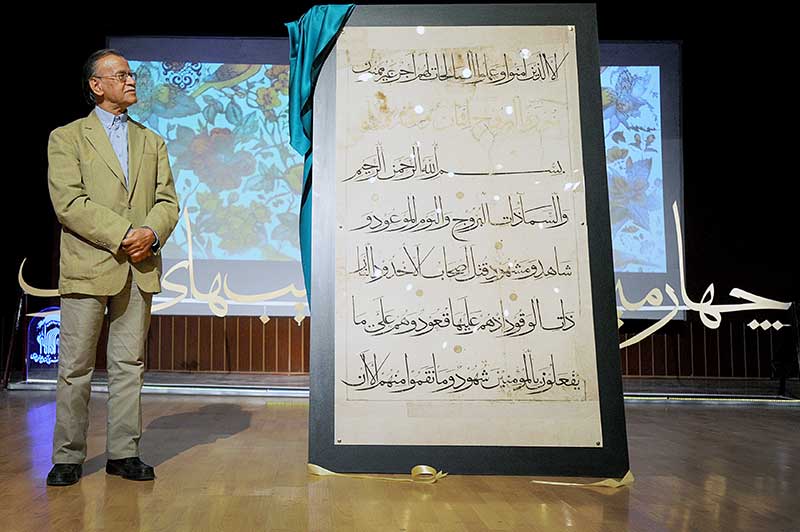 لا الذين امنوا وعملوا الصالحات لهم اجر غير ممنون
بسم الله الرحمن الرحيم
والسماء ذات البروج واليوم الموعود و
شاهد ومشهود قتل اصحاب الاخدود النار
ذات الوقود اذ هم عليها قعود وهم على ما
يفعلون بالمؤمنين شهود وما نقموا منهم الا ان